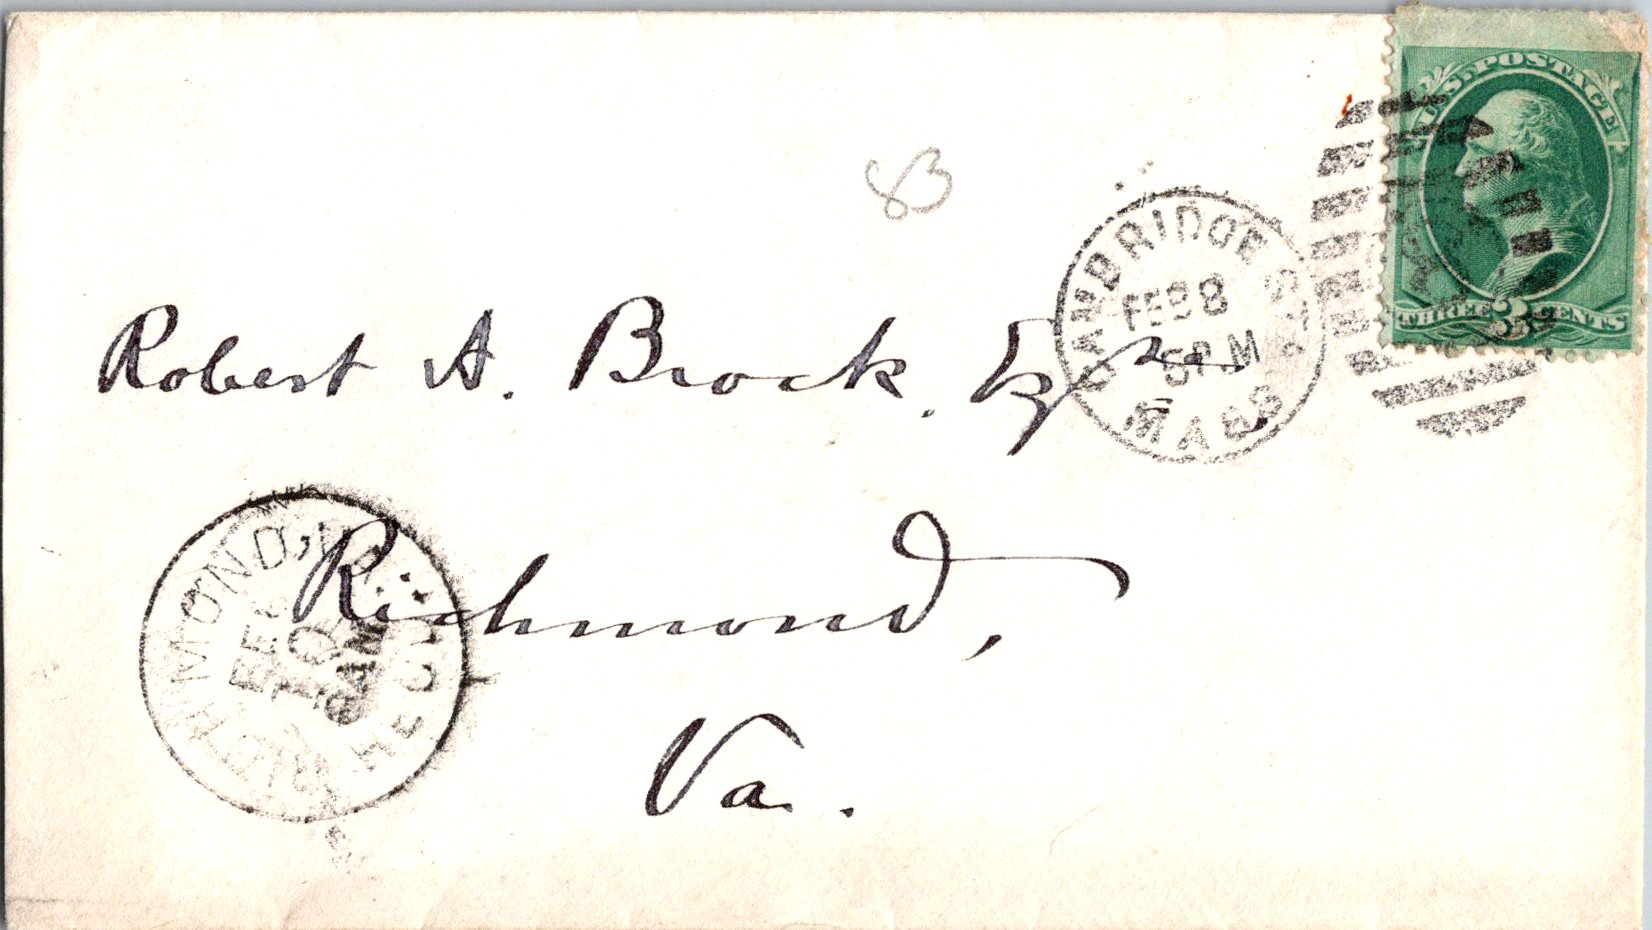 U.S. POSTAGE
THREE 3 CENTS
83
CAMBRIDGE STA.
FEB 8
5 PM
MASS.
Robert A. Brock, Esq
Richmond,
Va.
RICHMOND, VA.
FEB
10
8 AM
REC'D